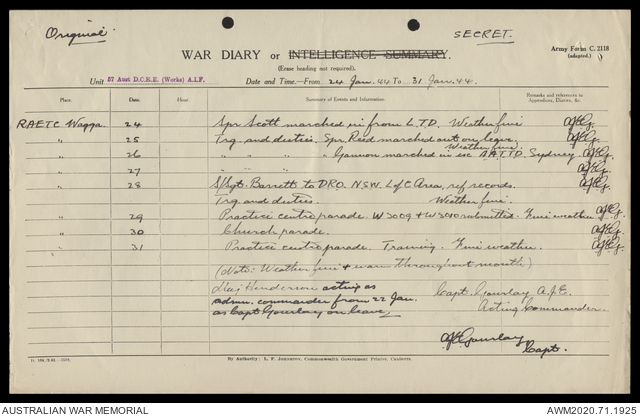 Original.
SECRET.
WAR DIARY or INTELLIGENCE SUMMARY.
Army Form C. 2118
(adapted.)
(Erase heading not required).
Unit 57 Aust D.C.R.E. (Works) A.I.F.
Date and Time—From 24 Jan. 44 To 31 Jan. 44.
Place. Date. Hour. Summary of Events and Information. Remarks and references to Appendices, Diaries, &c.
RAETC Wagga 24 Spr Scott marched in from L.T.D. Weather fine
" 25 Trg. and duties. Spr. Reed marched out on leave.
Weather fine.
" 26 " " " " Gannon marched in ex AATTD Sydney
" 27 " " "
" 28 S/Sgt. Barrett to DRO. NSW. L of C Area, ref records.
Trg. and duties. Weather fine.
" 29 Practice centre parade. W3009 + W3010 submitted. Fine weather.
" 30 Church parade.
" 31 Practice centre parade. Training. Fine weather.
(Note: Weather fine + warm throughout month)
Maj Henderson acting as Capt. Gourlay A.J.E.
admin. commander from 22 Jan. Acting Commander.
as Capt Gourlay on leave.
AJE Gourlay
Capt.
By Authority: L. F. Johnston, Commonwealth Government Printer, Canberra
AUSTRALIAN WAR MEMORIAL
AWM2020.71.1925